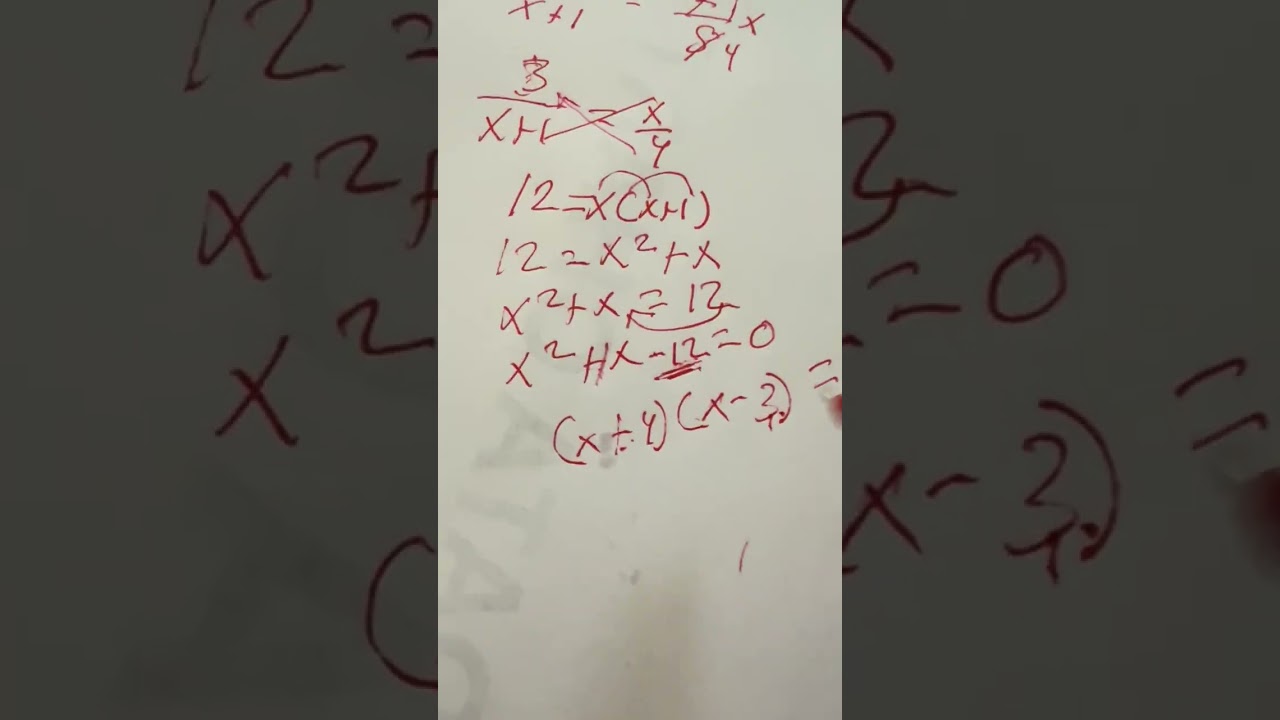 x+1 =
x
84
3/x+1 = x/4
12=x(x+1)
12=x²+x
x²+x=12
x²+x-12=0
(x+4)(x-3)=